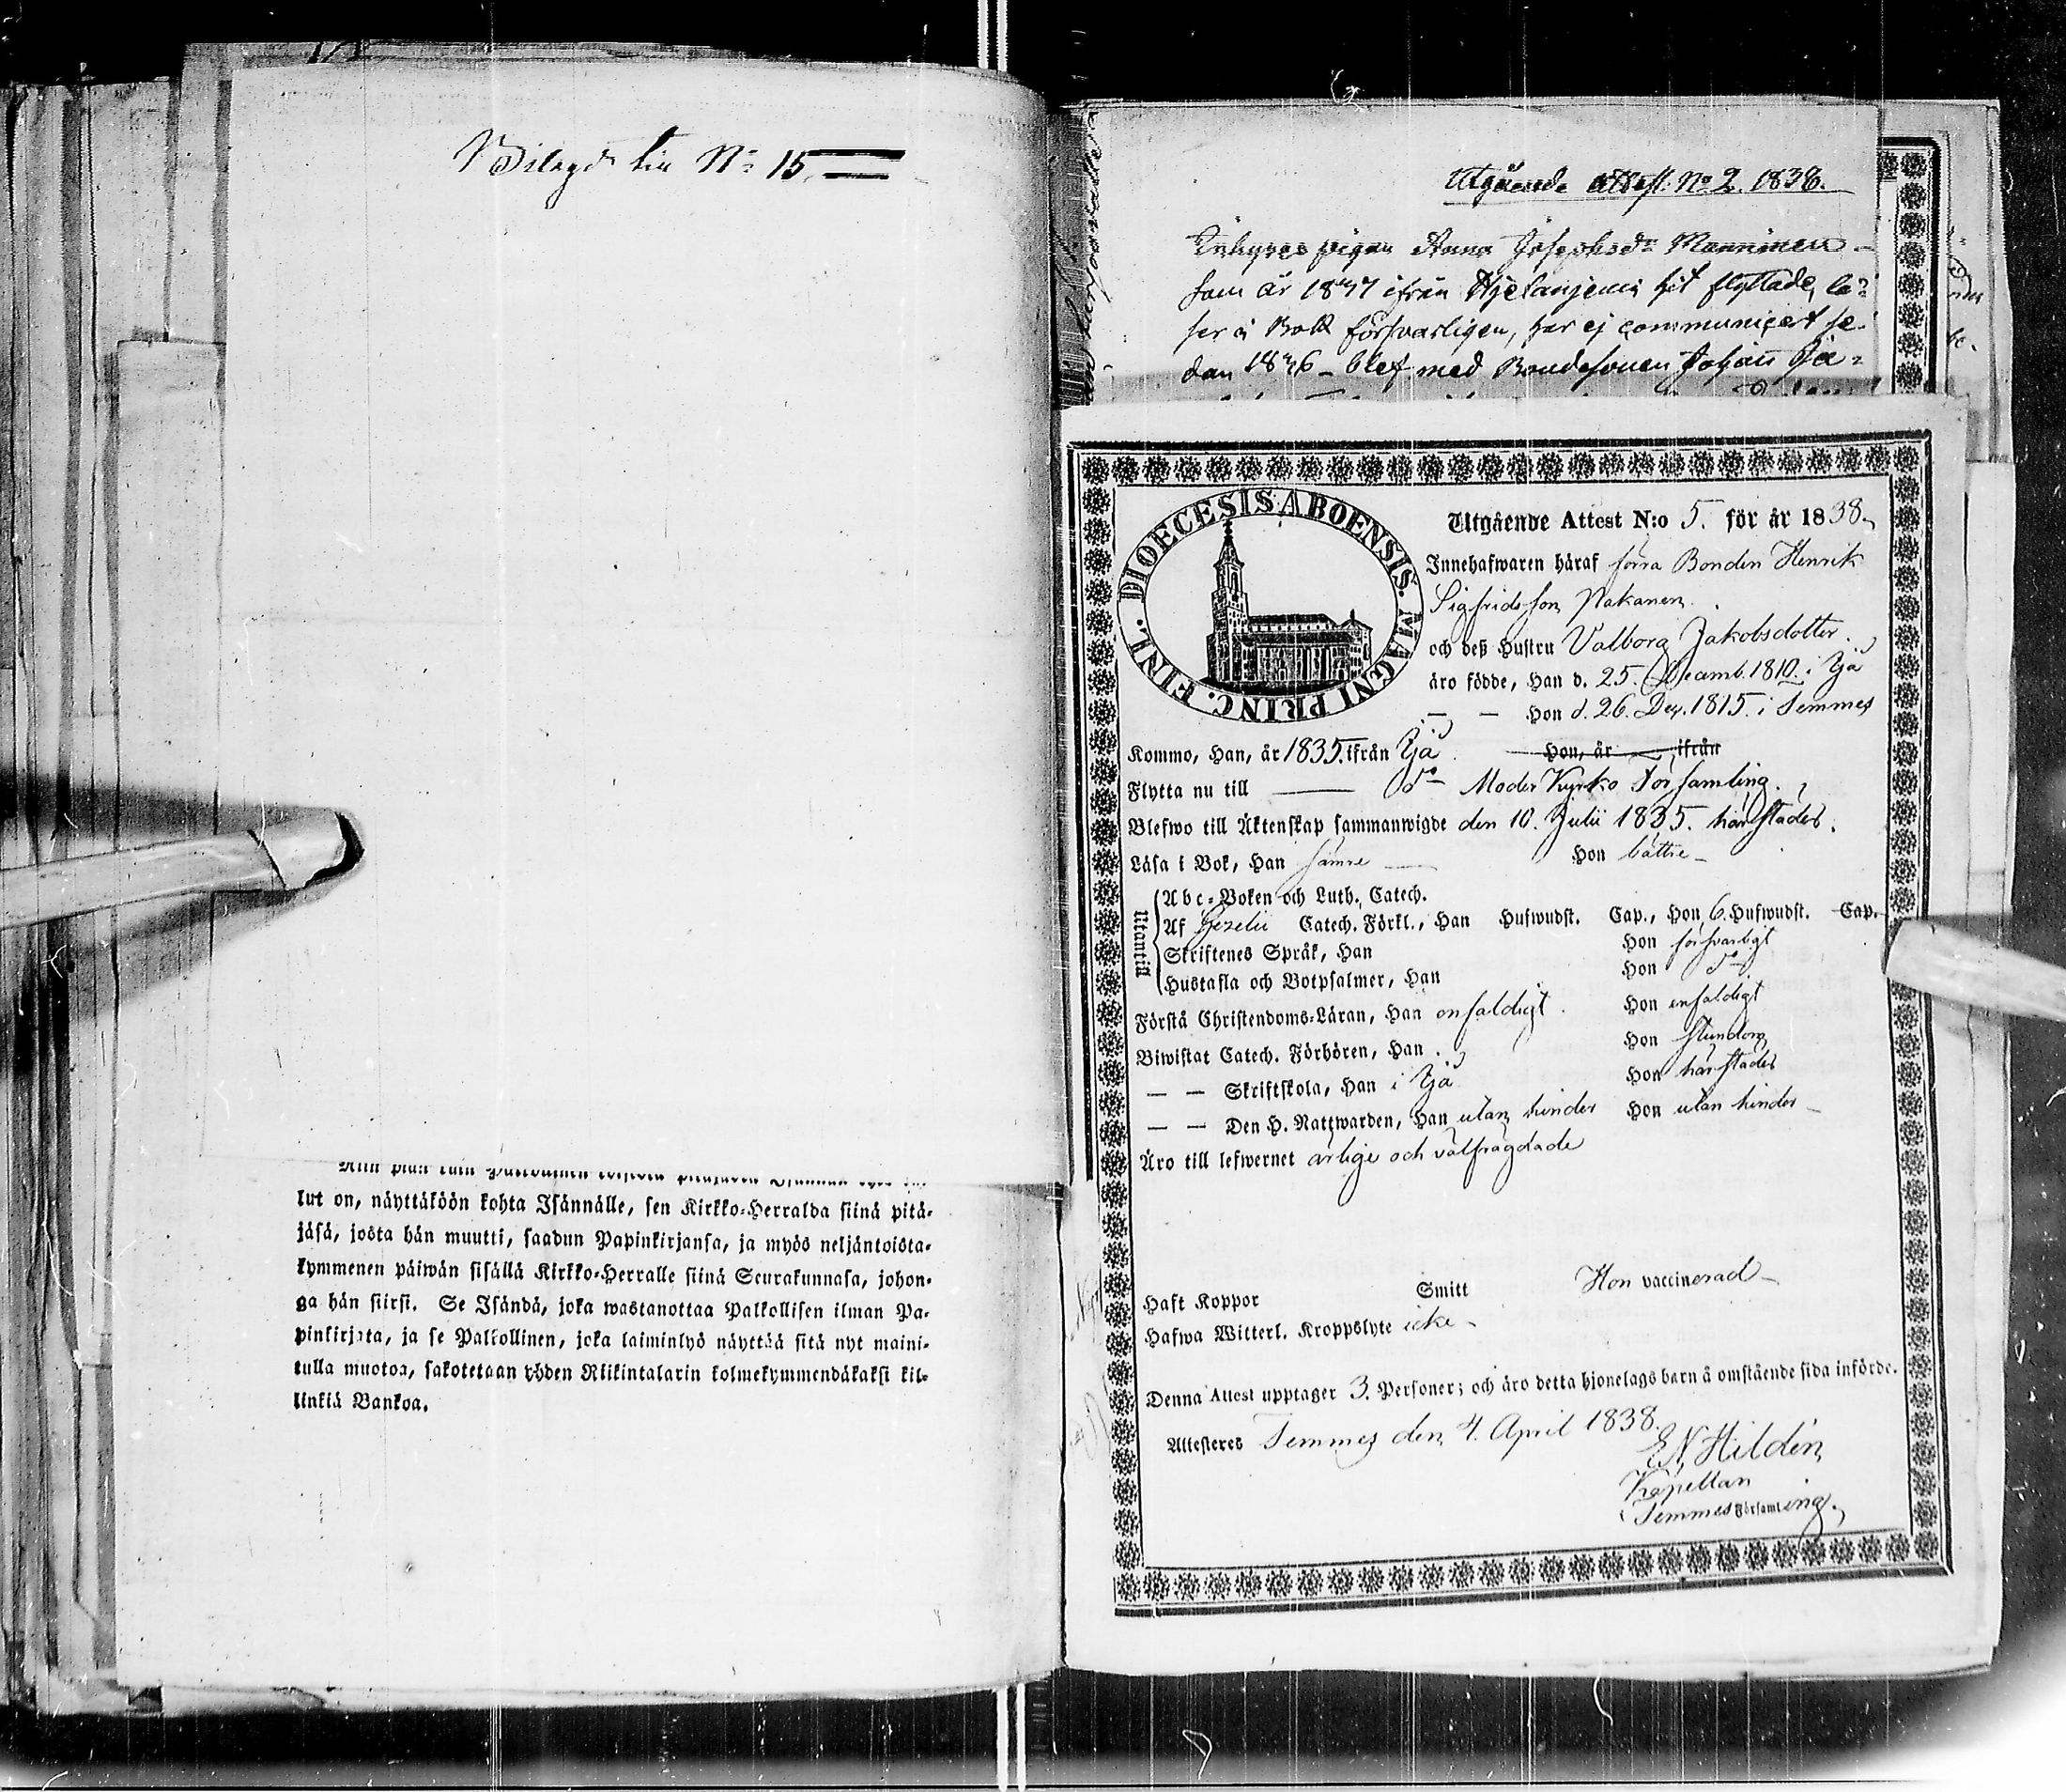 Bilagd till No 15.
lut on, näyttäköön kohta Isännälle, sen Kirkko-Herralda siinä pitä-
jäsä, josta hän muutti, saadun Papinkirjansa, ja myös neljäntoista-
kymmenen päiwän sisällä Kirkko-Herralle siinä Seurakunnasa, johon-
ga hän siirsi. Se Isändä, joka wastanottaa Palkollisen ilman Pa-
pinkirjata, ja se Palkollinen, joka laiminlyö näyttää sitä nyt maini-
tulla muotoa, sakotetaan yhden Riikintalarin kolmekymmendäkaksi kil-
linkiä Bankoa.
Utgående attest: No 2. 1838.
pigan Anna Josephsdr Manninen
som år ifrån hit flyttade, lä-
ser i Bok försvarligen, har ej communicert se-
dan blef med Bondesonen Johan
DIOECESIS ABOENSIS. MAGNI PRINC. FINL.
Utgående Attest N:o 5. för år 1838.
Innehafwaren häraf förra Bonden Henrik
Sigfridsson Pakanen.
och deß Hustru Valborg Jakobsdotter.
äro födde, Han d. 25. Decemb. 1810. i Ijå
— — Hon d. 26. Dec. 1815. i Temmes
Kommo, Han, år 1835. ifrån Ijå Hon, år ifrån
Flytta nu till — do Moder Kyrko Församling.
Blefwo till Äktenskap sammanwigde den 10. Julii 1835. härstädes.
Läsa i Bok, Han sämre — Hon bättre —
Utantill
Abc-Boken och Luth. Catech.
Af Gezelii Catech. Förkl., Han Hufwudst. Cap., Hon 6. Hufwudst. Cap.
Skriftenes Språk, Han Hon försvarligt
Hustafla och Botpsalmer, Han Hon do
Förstå Christendoms-Läran, Han enfaldigt. Hon enfaldigt
Biwistat Catech. Förhören, Han Hon stundom
— — Skriftskola, Han i Ijå Hon härstädes
— — Den H. Nattwarden, Han utan hinder Hon utan hinder —
Äro till lefwernet ärlige och välfrägdade
Haft Koppor Smitt Hon vaccinerad —
Hafwa Witterl. Kroppslyte icke —
Denna Attest upptager 3. Personer; och äro detta hjonelags barn å omstående sida införde.
Attesteres Temmes den 4. April 1838.
E N Hildén
Kapellan
Temmes Församling.